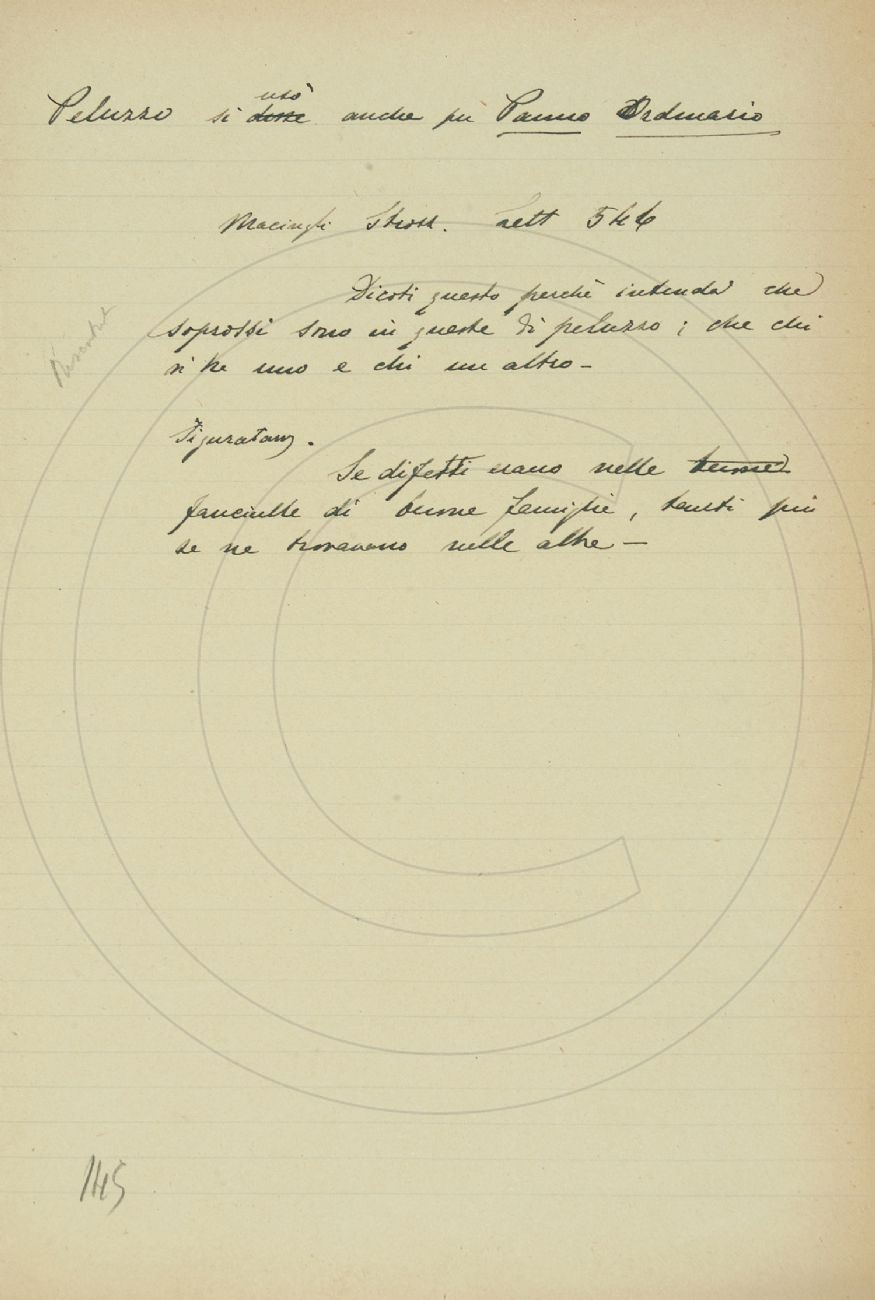 Peluzzo si usò disse anche per Panno Ordinario
Macinghi Strozz. Lett 546
Dicoti questo perchè intenda che
soprossi sono in queste di peluzzo; che chi
n'ha uno e chi un altro -
Figuratam.
Se difetti erano nelle buone
fanciulle di buone famiglie, tanti più
se ne trovavano nelle altre -
145